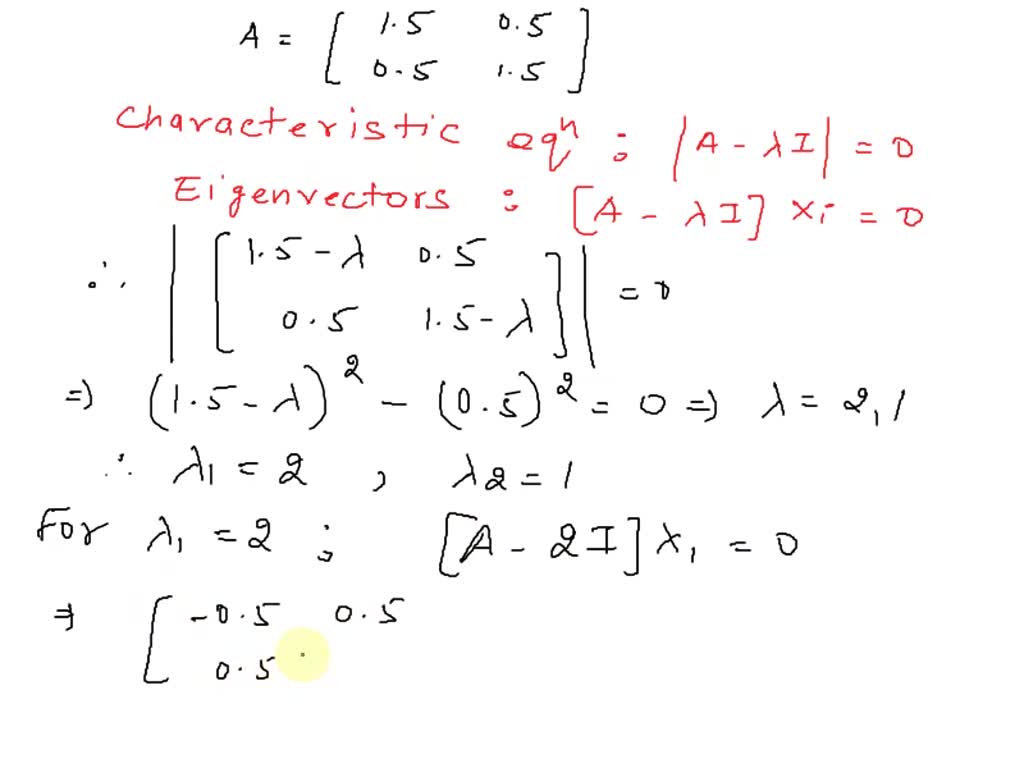 A = [ 1.5 0.5
0.5 1.5 ]
Characteristic eqⁿ : |A - λI| = 0
Eigenvectors : [A - λI] Xi = 0
∴ | [ 1.5 - λ 0.5
0.5 1.5 - λ ] | = 0
⇒ (1.5 - λ)² - (0.5)² = 0 ⇒ λ = 2, 1
∴ λ1 = 2 , λ2 = 1
For λ1 = 2 : [A - 2I] X1 = 0
⇒ [ -0.5 0.5
0.5